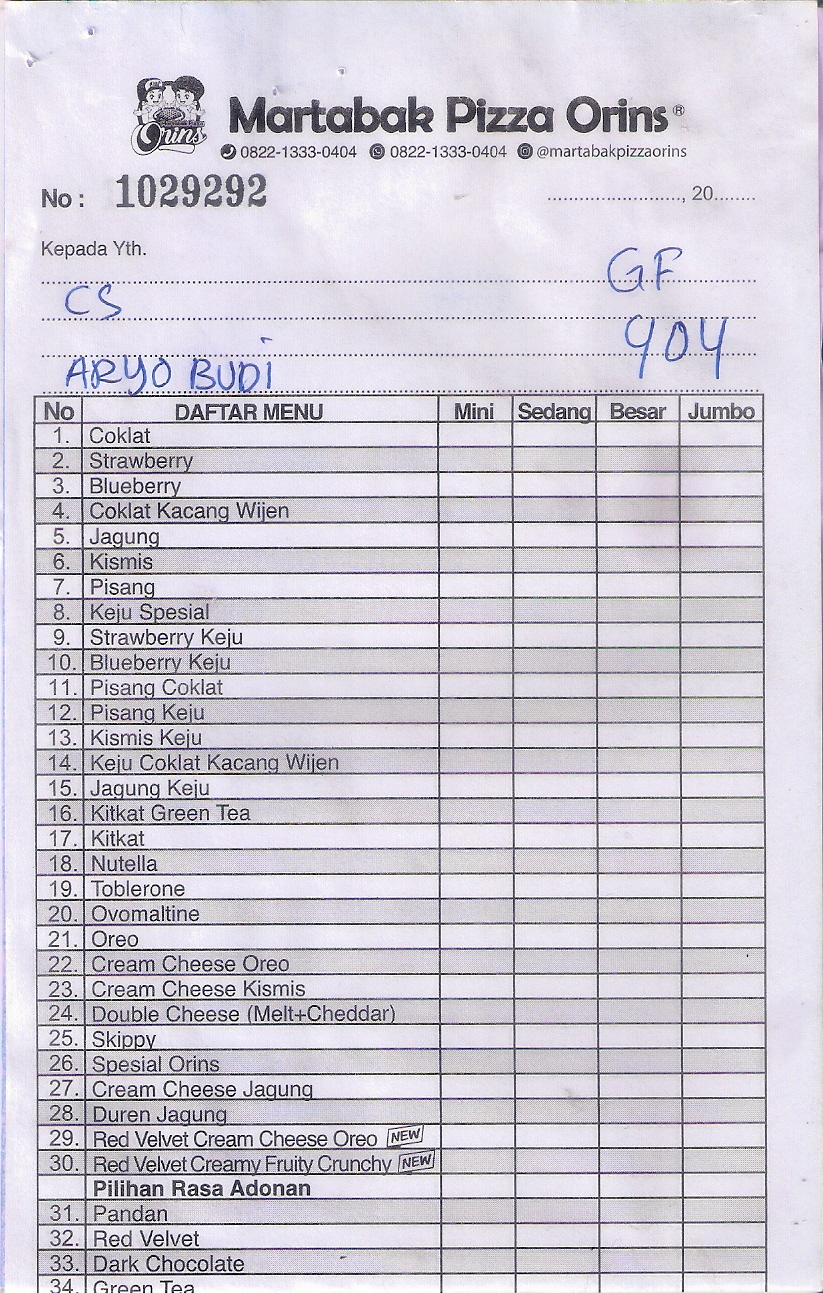 Orins
Martabak Pizza Orins®
0822-1333-0404 0822-1333-0404 @martabakpizzaorins
No : 1029292 ........................, 20........
Kepada Yth.
GF
CS
904
ARYO BUDI
No DAFTAR MENU Mini Sedang Besar Jumbo
1. Coklat
2. Strawberry
3. Blueberry
4. Coklat Kacang Wijen
5. Jagung
6. Kismis
7. Pisang
8. Keju Spesial
9. Strawberry Keju
10. Blueberry Keju
11. Pisang Coklat
12. Pisang Keju
13. Kismis Keju
14. Keju Coklat Kacang Wijen
15. Jagung Keju
16. Kitkat Green Tea
17. Kitkat
18. Nutella
19. Toblerone
20. Ovomaltine
21. Oreo
22. Cream Cheese Oreo
23. Cream Cheese Kismis
24. Double Cheese (Melt+Cheddar)
25. Skippy
26. Spesial Orins
27. Cream Cheese Jagung
28. Duren Jagung
29. Red Velvet Cream Cheese Oreo NEW
30. Red Velvet Creamy Fruity Crunchy NEW
Pilihan Rasa Adonan
31. Pandan
32. Red Velvet
33. Dark Chocolate
34. Green Tea